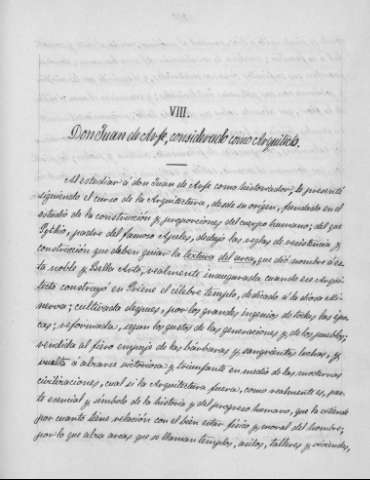 VIII.
Don Juan de Arfe, considerado como Arquitecto.
Al estudiar á don Juan de Arfe como historiador, le presenté
siguiendo el curso de la Arquitectura, desde su origen, fundada en el
estudio de la construcción y proporciones del cuerpo humano; del que
Pythio, padre del famoso Apeles, dedujo las reglas de resistencia y
construcción que deben guiar la textura del arca, que dió nombre á es-
ta noble y Bella Arte, realmente inaugurada cuando ese Arqui-
tecto construyó en Priene el célebre templo, dedicado á la diosa Mi-
nerva; cultivada despues, por los grandes ingenios de todas las épo-
cas; reformada, segun los gustos de las generaciones y de los pueblos;
rendida al fiero empuje de las bárbaras y sangrientas luchas, y
vuelta á alzarse victoriosa y triunfante en medio de las modernas
civilizaciones, cual si la Arquitectura fuera, como realmente es, par-
te esencial y símbolo de la historia y del progreso humano, que la extiende
por cuanto tiene relación con el bien estar físico y moral del hombre;
por lo que alza arcas que se llaman templos, asilos, talleres y viviendas,